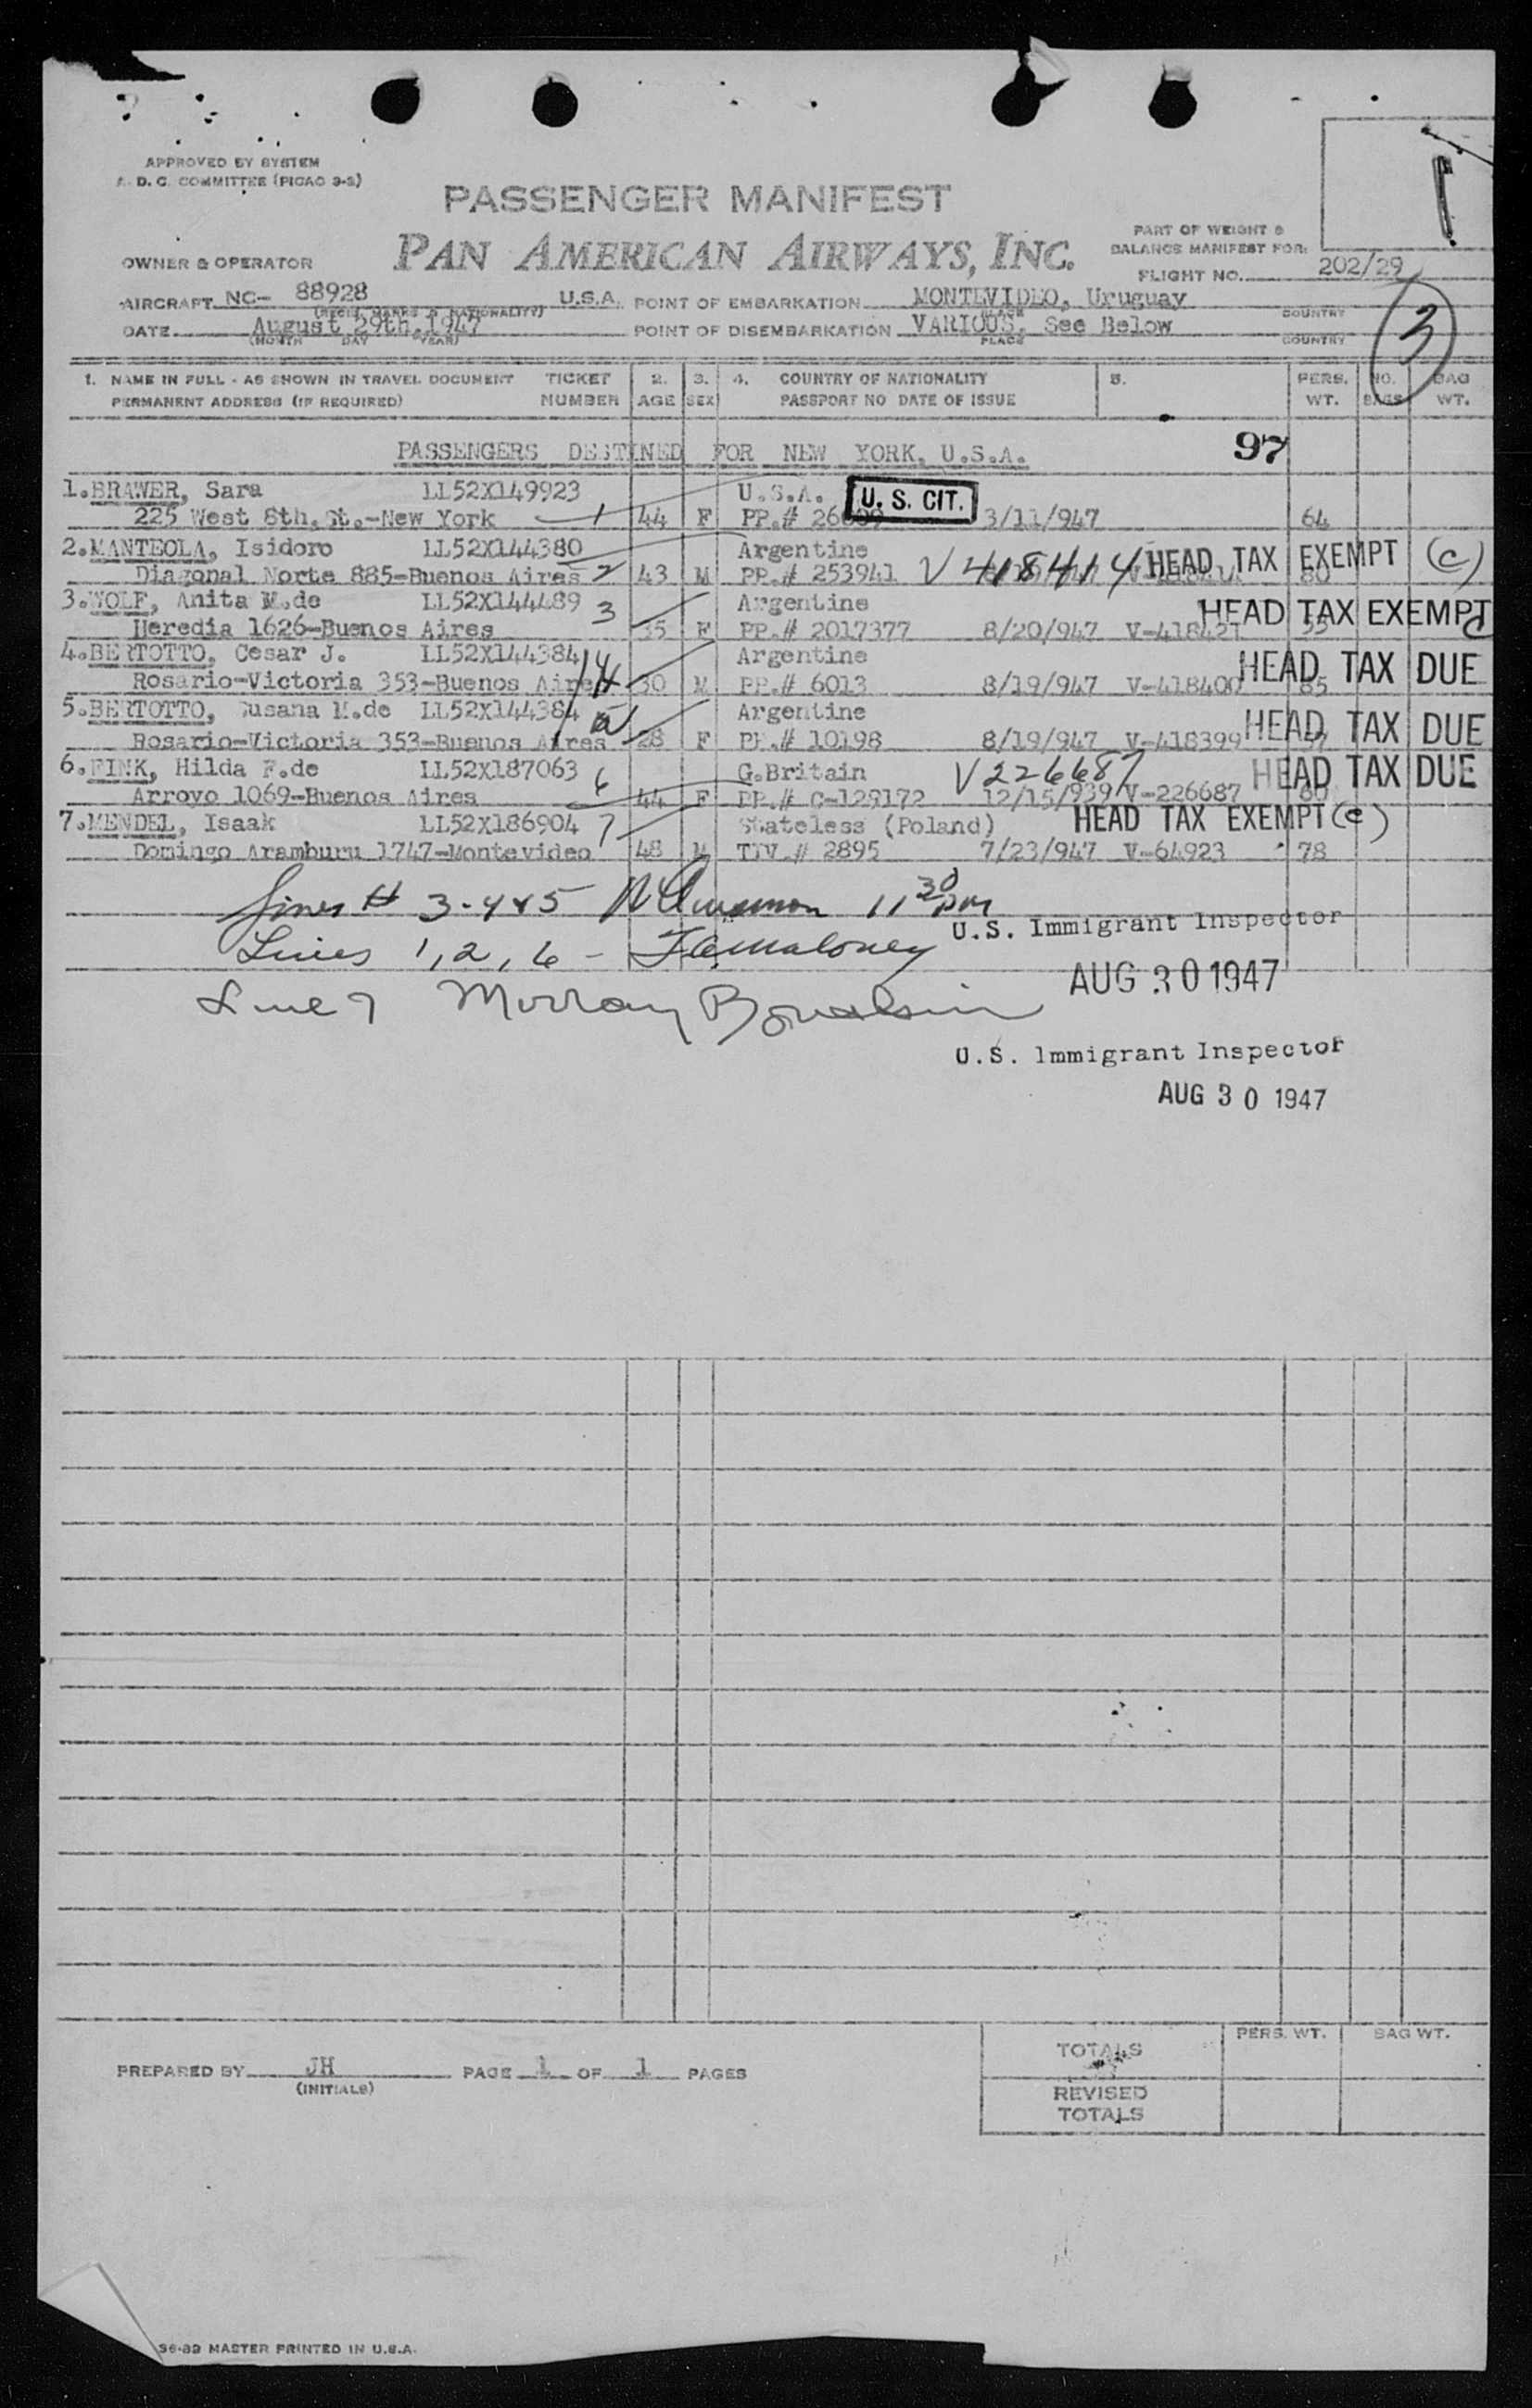 APPROVED BY SYSTEM
D. C. COMMITTEE (PICAO 9-2)
PASSENGER MANIFEST
PAN AMERICAN AIRWAYS, INC.
PART OF WEIGHT &
BALANCE MANIFEST FOR:
OWNER & OPERATOR
FLIGHT NO. 202/29
AIRCRAFT NC- 88928 U.S.A. POINT OF EMBARKATION MONTEVIDEO, Uruguay
(REGIS. MARKS & NATIONALITY) PLACE COUNTRY
DATE August 29th, 1947 POINT OF DISEMBARKATION VARIOUS, See Below
(MONTH DAY YEAR) PLACE COUNTRY
3
1. NAME IN FULL - AS SHOWN IN TRAVEL DOCUMENT TICKET 2. 3. 4. COUNTRY OF NATIONALITY 5. PERS. NO. BAG
PERMANENT ADDRESS (IF REQUIRED) NUMBER AGE SEX PASSPORT NO DATE OF ISSUE WT. BAGS WT.
PASSENGERS DESTINED FOR NEW YORK, U.S.A. 97
1.BRAWER, Sara LL52X149923 U.S.A. U. S. CIT.
225 West 8th.St.-New York 1 44 F PP.# 3/11/947 64
2.MANTEOLA, Isidoro LL52X144380 Argentine
Diagonal Norte 885-Buenos Aires 2 43 M PP.# 253941 V 418414 HEAD TAX EXEMPT (c)
3.WOLF, Anita M.de LL52X144489 3 Argentine HEAD TAX EXEMPT c
Heredia 1626-Buenos Aires 35 F PP.# 2017377 8/20/947 V-418421 55
4.BERTOTTO, Cesar J. LL52X144384 4 Argentine HEAD TAX DUE
Rosario-Victoria 353-Buenos Aires 30 M PP.# 6013 8/19/947 V-418400 85
5.BERTOTTO, Susana M.de LL52X144384 5 Argentine HEAD TAX DUE
Rosario-Victoria 353-Buenos Aires 28 F PP.# 10198 8/19/947 V-418399
6.FINK, Hilda F.de LL52X187063 6 G.Britain V 226687 HEAD TAX DUE
Arroyo 1069-Buenos Aires 44 F PP.# C-129172 12/15/939 V-226687 60
7.MENDEL, Isaak LL52X186904 7 Stateless (Poland) HEAD TAX EXEMPT (c)
Domingo Aramburu 1747-Montevideo 48 M TIV.# 2895 7/23/947 V-64923 78
Lines # 3-4&5 11 30 pm
U.S. Immigrant Inspector
Lines 1, 2, 6 - Maloney
AUG 30 1947
Line 7 Murray
U.S. Immigrant Inspector
AUG 30 1947
PERS. WT. BAG WT.
TOTALS
PREPARED BY JH PAGE 1 OF 1 PAGES
(INITIALS)
REVISED
TOTALS
96-89 MASTER PRINTED IN U.S.A.